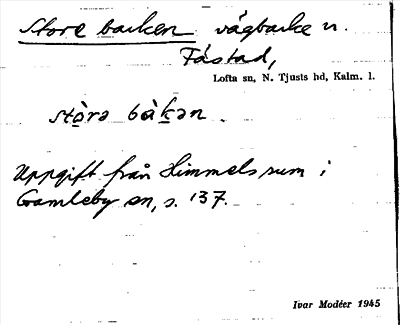 Store backen vägbacke n.
Fåstad,
Lofta sn, N. Tjusts hd, Kalm. l.
stòrə bàkən.
Uppgift från Himmelsrum i
Gamleby sn, s. 137.
Ivar Modéer 1945